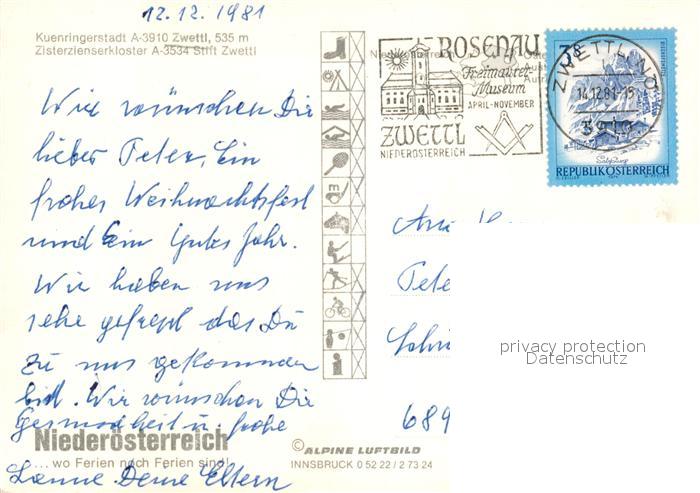 12.12.1981
Kuenringerstadt A-3910 Zwettl, 535 m
Zisterzienserkloster A-3534 Stift Zwettl
Wir wünschen Dir
lieber Peter, Ein
frohes Weihnachtsfest
und Ein Gutes Jahr.
Wir haben uns
sehr gefreut das Du
zu uns gekommen
bist. Wir wünschen Dir
Gesundheit u. frohe
Niederösterreich
... wo Ferien noch Ferien sind!
Deine Eltern
© ALPINE LUFTBILD
INNSBRUCK 0 52 22 / 2 73 24
ROSENAU
Freimaurer-
Museum
APRIL-NOVEMBER
ZWETTL
NIEDERÖSTERREICH
ZWETTL NÖ
14.12.81-15
3910
3S
REPUBLIK ÖSTERREICH
Peter
689
privacy protection
Datenschutz